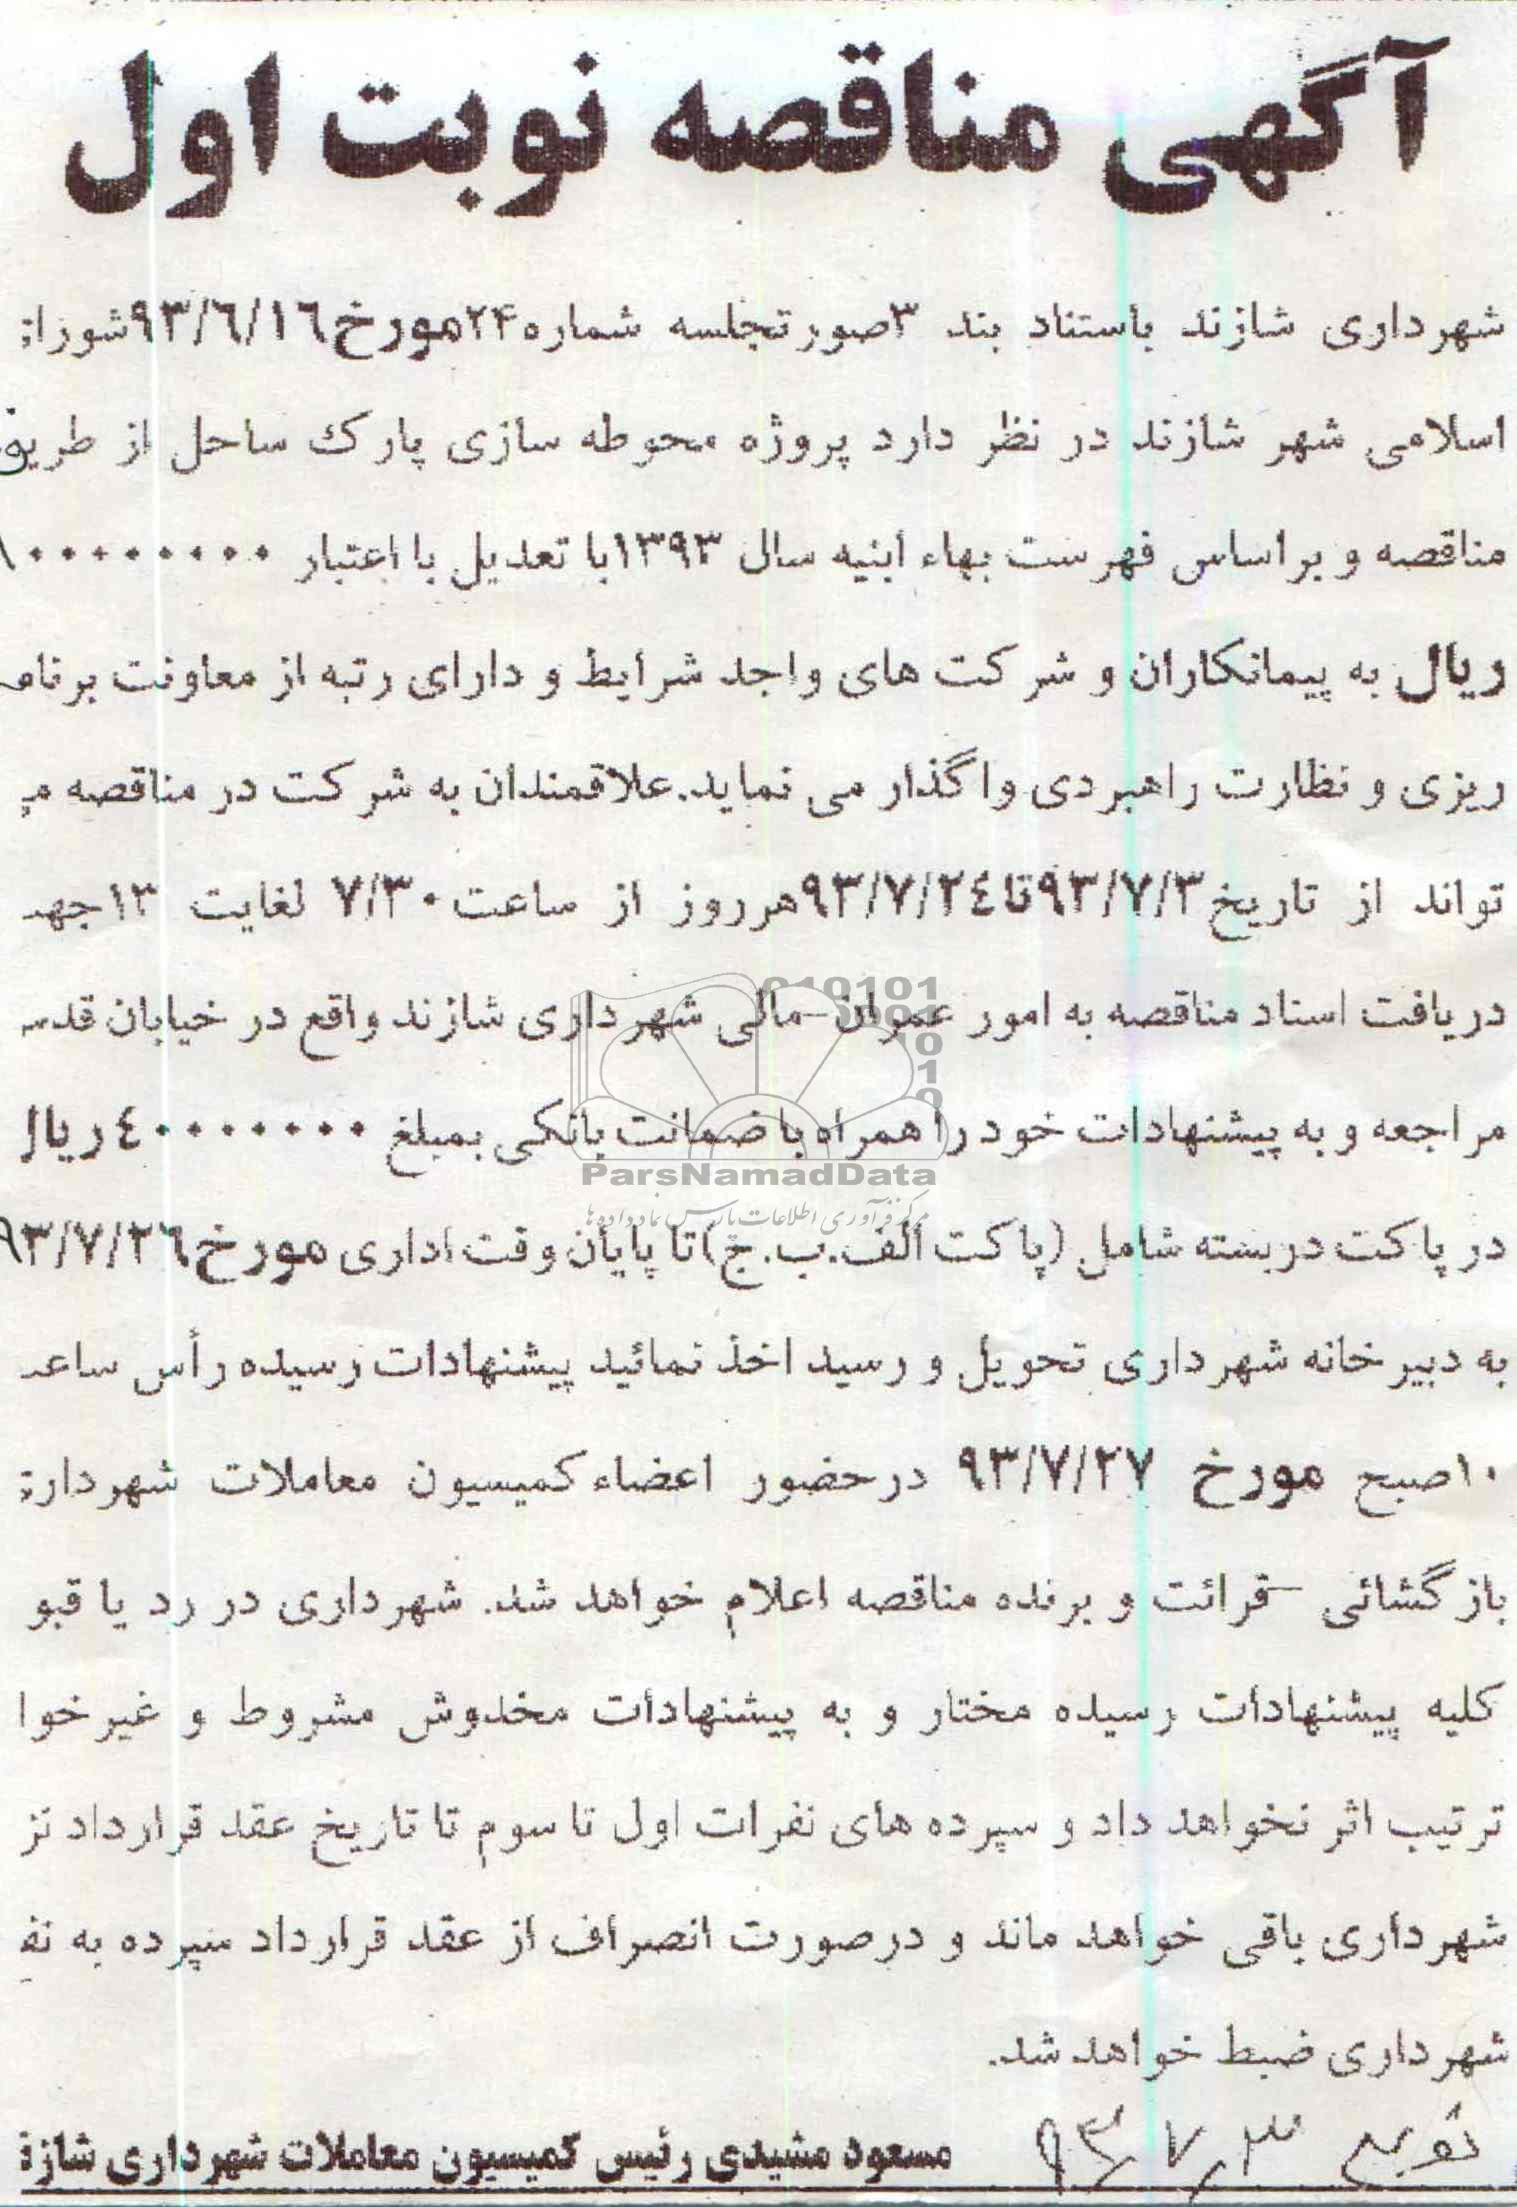 آگهی مناقصه نوبت اول
شهرداری شازند باستناد بند ۳صورتجلسه شماره۲۴مورخ۹۳/۶/۱۶
اسلامی شهر شازند در نظر دارد پروژه محوطه سازی پارک ساحل از
مناقصه و براساس فهرست بهاء ابنیه سال ۱۳۹۳با تعدیل با اعتبار
ریال به پیمانکاران و شرکت های واجد شرایط و دارای رتبه از معاونت
ریزی و نظارت راهبردی واگذار می نماید.علاقمندان به شرکت در مناقصه
تواند از تاریخ۹۳/۷/۳تا۹۳/۷/۲۴هرروز از ساعت۷/۳۰ لغایت ۱۳
دریافت اسناد مناقصه به امور عمران-مالی شهرداری شازند واقع در خیابان
مراجعه و به پیشنهادات خود را همراه با ضمانت بانکی بمبلغ ۴۰۰۰۰۰۰۰۰ریال
در پاکت دربسته شامل (پاکت الف.ب.ج)تا پایان وقت اداری مورخ۹۳/۷/۲۶
به دبیرخانه شهرداری تحویل و رسید اخذ نمائید پیشنهادات رسیده رأس
۱۰صبح مورخ ۹۳/۷/۲۷ درحضور اعضاء کمیسیون معاملات
بازگشائی –قرائت و برنده مناقصه اعلام خواهد شد. شهرداری در رد یا
کلیه پیشنهادات رسیده مختار و به پیشنهادات مخدوش مشروط و
ترتیب اثر نخواهد داد و سپرده های نفرات اول تا سوم تا تاریخ عقد قرارداد
شهرداری باقی خواهد ماند و درصورت انصراف از عقد قرارداد سپرده به
شهرداری ضبط خواهد شد.
۹۳/۷/۳
مسعود مشیدی رئیس کمیسیون معاملات شهرداری
010101
ParsNamadData
مرکز فرآوری اطلاعات پارس نماد داده ها